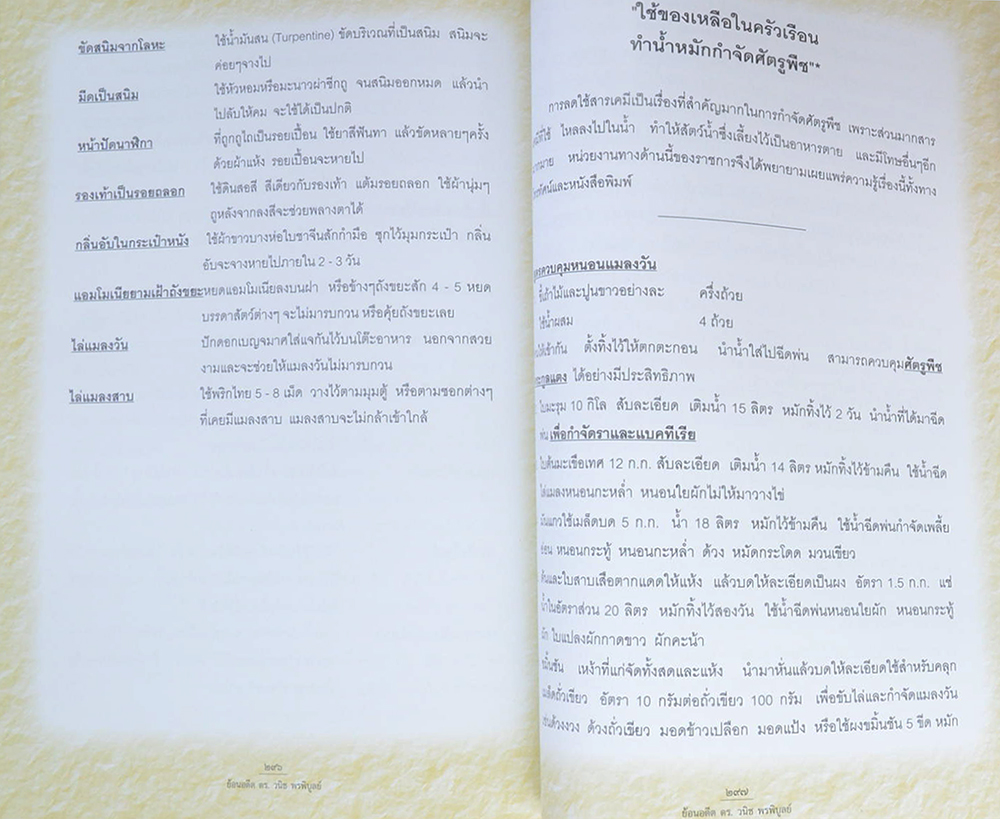 ขัดสนิมจากโลหะ ใช้น้ำมันสน (Turpentine) ขัดบริเวณที่เป็นสนิม สนิมจะ
ค่อยๆจางไป
มีดเป็นสนิม ใช้หัวหอมหรือมะนาวผ่าซีกถู จนสนิมออกหมด แล้วนำ
ไปลับให้คม จะใช้ได้เป็นปกติ
หน้าปัดนาฬิกา ที่ถูกถูไถเป็นรอยเปื้อน ใช้ยาสีฟันทา แล้วขัดหลายๆครั้ง
ด้วยผ้าแห้ง รอยเปื้อนจะหายไป
รองเท้าเป็นรอยถลอก ใช้ดินสอสี สีเดียวกับรองเท้า แต้มรอยถลอก ใช้ผ้านุ่มๆ
ถูหลังจากลงสีจะช่วยพลางตาได้
กลิ่นอับในกระเป๋าหนัง ใช้ผ้าขาวบางห่อใบชาจีนสักกำมือ ซุกไว้มุมกระเป๋า กลิ่น
อับจะจางหายไปภายใน 2 - 3 วัน
แอมโมเนียยามเฝ้าถังขยะ หยดแอมโมเนียลงบนฝา หรือข้างๆถังขยะสัก 4 - 5 หยด
บรรดาสัตว์ต่างๆ จะไม่มารบกวน หรือคุ้ยถังขยะเลย
ไล่แมลงวัน ปักดอกเบญจมาศใส่แจกันไว้บนโต๊ะอาหาร นอกจากสวย
งามและจะช่วยให้แมลงวันไม่มารบกวน
ไล่แมลงสาบ ใช้พริกไทย 5 - 8 เม็ด วางไว้ตามมุมตู้ หรือตามซอกต่างๆ
ที่เคยมีแมลงสาบ แมลงสาบจะไม่กล้าเข้าใกล้
๒๙๖
ย้อนอดีต ดร. วนิช พรพิบูลย์
"ใช้ของเหลือในครัวเรือน
ทำน้ำหมักกำจัดศัตรูพืช"*
การลดใช้สารเคมีเป็นเรื่องที่สำคัญมากในการกำจัดศัตรูพืช เพราะส่วนมากสาร
ที่ใช้ ไหลลงไปในน้ำ ทำให้สัตว์น้ำซึ่งเลี้ยงไว้เป็นอาหารตาย และมีโทษอื่นๆอีก
หน่วยงานทางด้านนี้ของราชการจึงได้พยายามเผยแพร่ความรู้เรื่องนี้ทั้งทาง
และหนังสือพิมพ์
ควบคุมหนอนแมลงวัน
ขี้เถ้าไม้และปูนขาวอย่างละ ครึ่งถ้วย
ใช้น้ำผสม 4 ถ้วย
ให้เข้ากัน ตั้งทิ้งไว้ให้ตกตะกอน นำน้ำใสไปฉีดพ่น สามารถควบคุมศัตรูพืช
ตระกูลแตง ได้อย่างมีประสิทธิภาพ
ใบมะรุม 10 กิโล สับละเอียด เติมน้ำ 15 ลิตร หมักทิ้งไว้ 2 วัน นำน้ำที่ได้มาฉีด
พ่น เพื่อกำจัดราและแบคทีเรีย
ใบต้นมะเขือเทศ 12 ก.ก. สับละเอียด เติมน้ำ 14 ลิตร หมักทิ้งไว้ข้ามคืน ใช้น้ำฉีด
ไล่แมลงหนอนกะหล่ำ หนอนใยผักไม่ให้มาวางไข่
มันแกวใช้เมล็ดบด 5 ก.ก. น้ำ 18 ลิตร หมักไว้ข้ามคืน ใช้น้ำฉีดพ่นกำจัดเพลี้ย
อ่อน หนอนกระทู้ หนอนกะหล่ำ ด้วง หมัดกระโดด มวนเขียว
ต้นและใบสาบเสือตากแดดให้แห้ง แล้วบดให้ละเอียดเป็นผง อัตรา 1.5 ก.ก. แช่
น้ำในอัตราส่วน 20 ลิตร หมักทิ้งไว้สองวัน ใช้น้ำฉีดพ่นหนอนใยผัก หนอนกระทู้
ผัก ใบแปลงผักกาดขาว ผักคะน้า
ขมิ้นชัน เหง้าที่แก่จัดทั้งสดและแห้ง นำมาหั่นแล้วบดให้ละเอียดใช้สำหรับคลุก
เมล็ดถั่วเขียว อัตรา 10 กรัมต่อถั่วเขียว 100 กรัม เพื่อขับไล่และกำจัดแมลงวัน
เช่นด้วงงวง ด้วงถั่วเขียว มอดข้าวเปลือก มอดแป้ง หรือใช้ผงขมิ้นชัน 5 ขีด หมัก
๒๙๗
ย้อนอดีต ดร. วนิช พรพิบูลย์